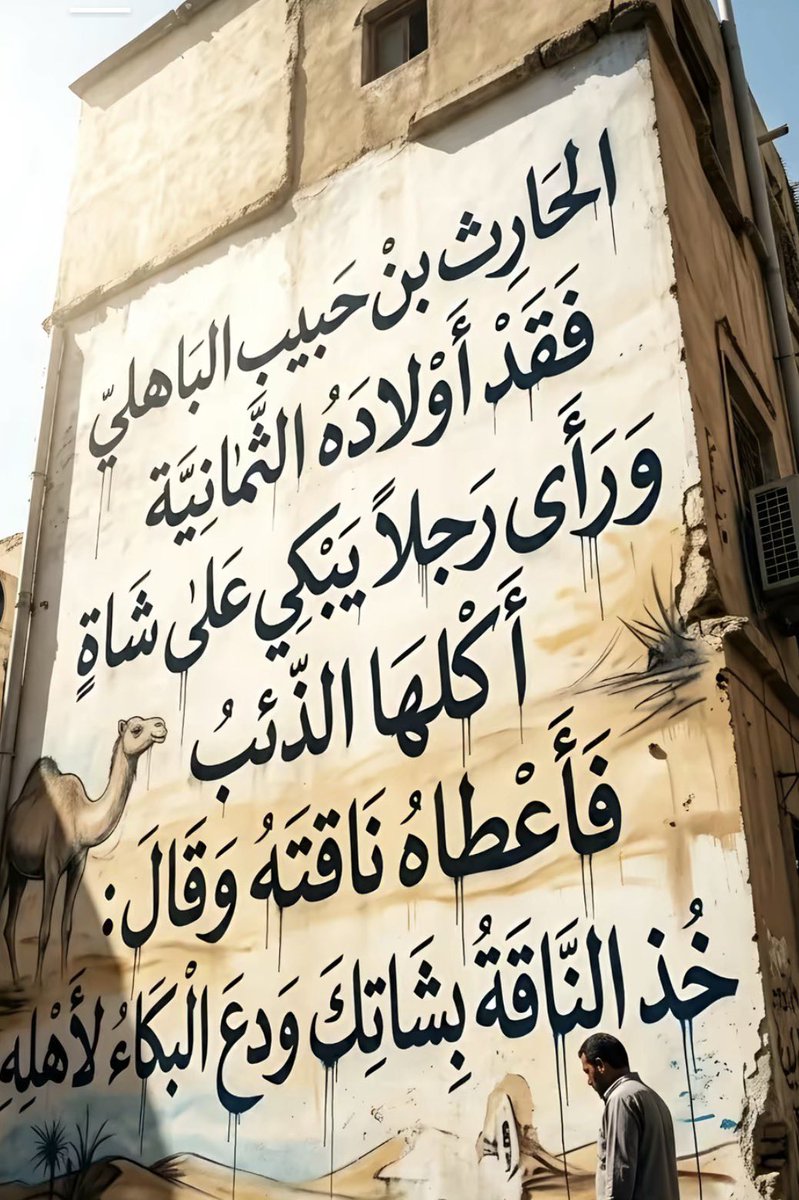 الحَارِث بنْ حَبيبِ البَاهليّ
فَقَدْ أَوْلادَهُ الثَّمٰانِيَّة
وَرَأَى رَجلاً يَبْكِي عَلىٰ شَاةٍ
أَكْلهَا الذّئبُ
فَأَعْطاهُ نَاقتَهُ وَقَالَ:
خُذ النَّاقَةُ بِشَاتِكَ وَدعَ الْبكَاءُ لأَهْلِهِ